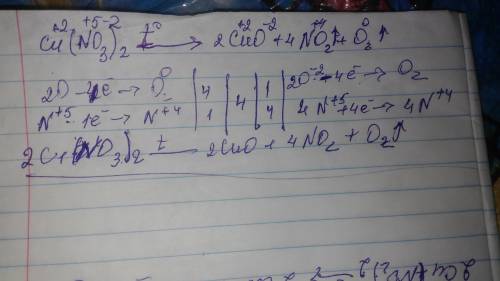 +2 +5 -2 +2 -2 +4 0
Cu(NO3)2 t° → 2CuO + 4NO2↑ + O2↑
2O - 4e̅ → O2⁰ | 4 | 4 | 1 | 2O⁻² - 4e̅ → O2
N⁺⁵ - 1e̅ → N⁺⁴ | 1 | | 4 | 4N⁺⁵ + 4e̅ → 4N⁺⁴
2Cu(NO3)2 t → 2CuO + 4NO2 + O2↑